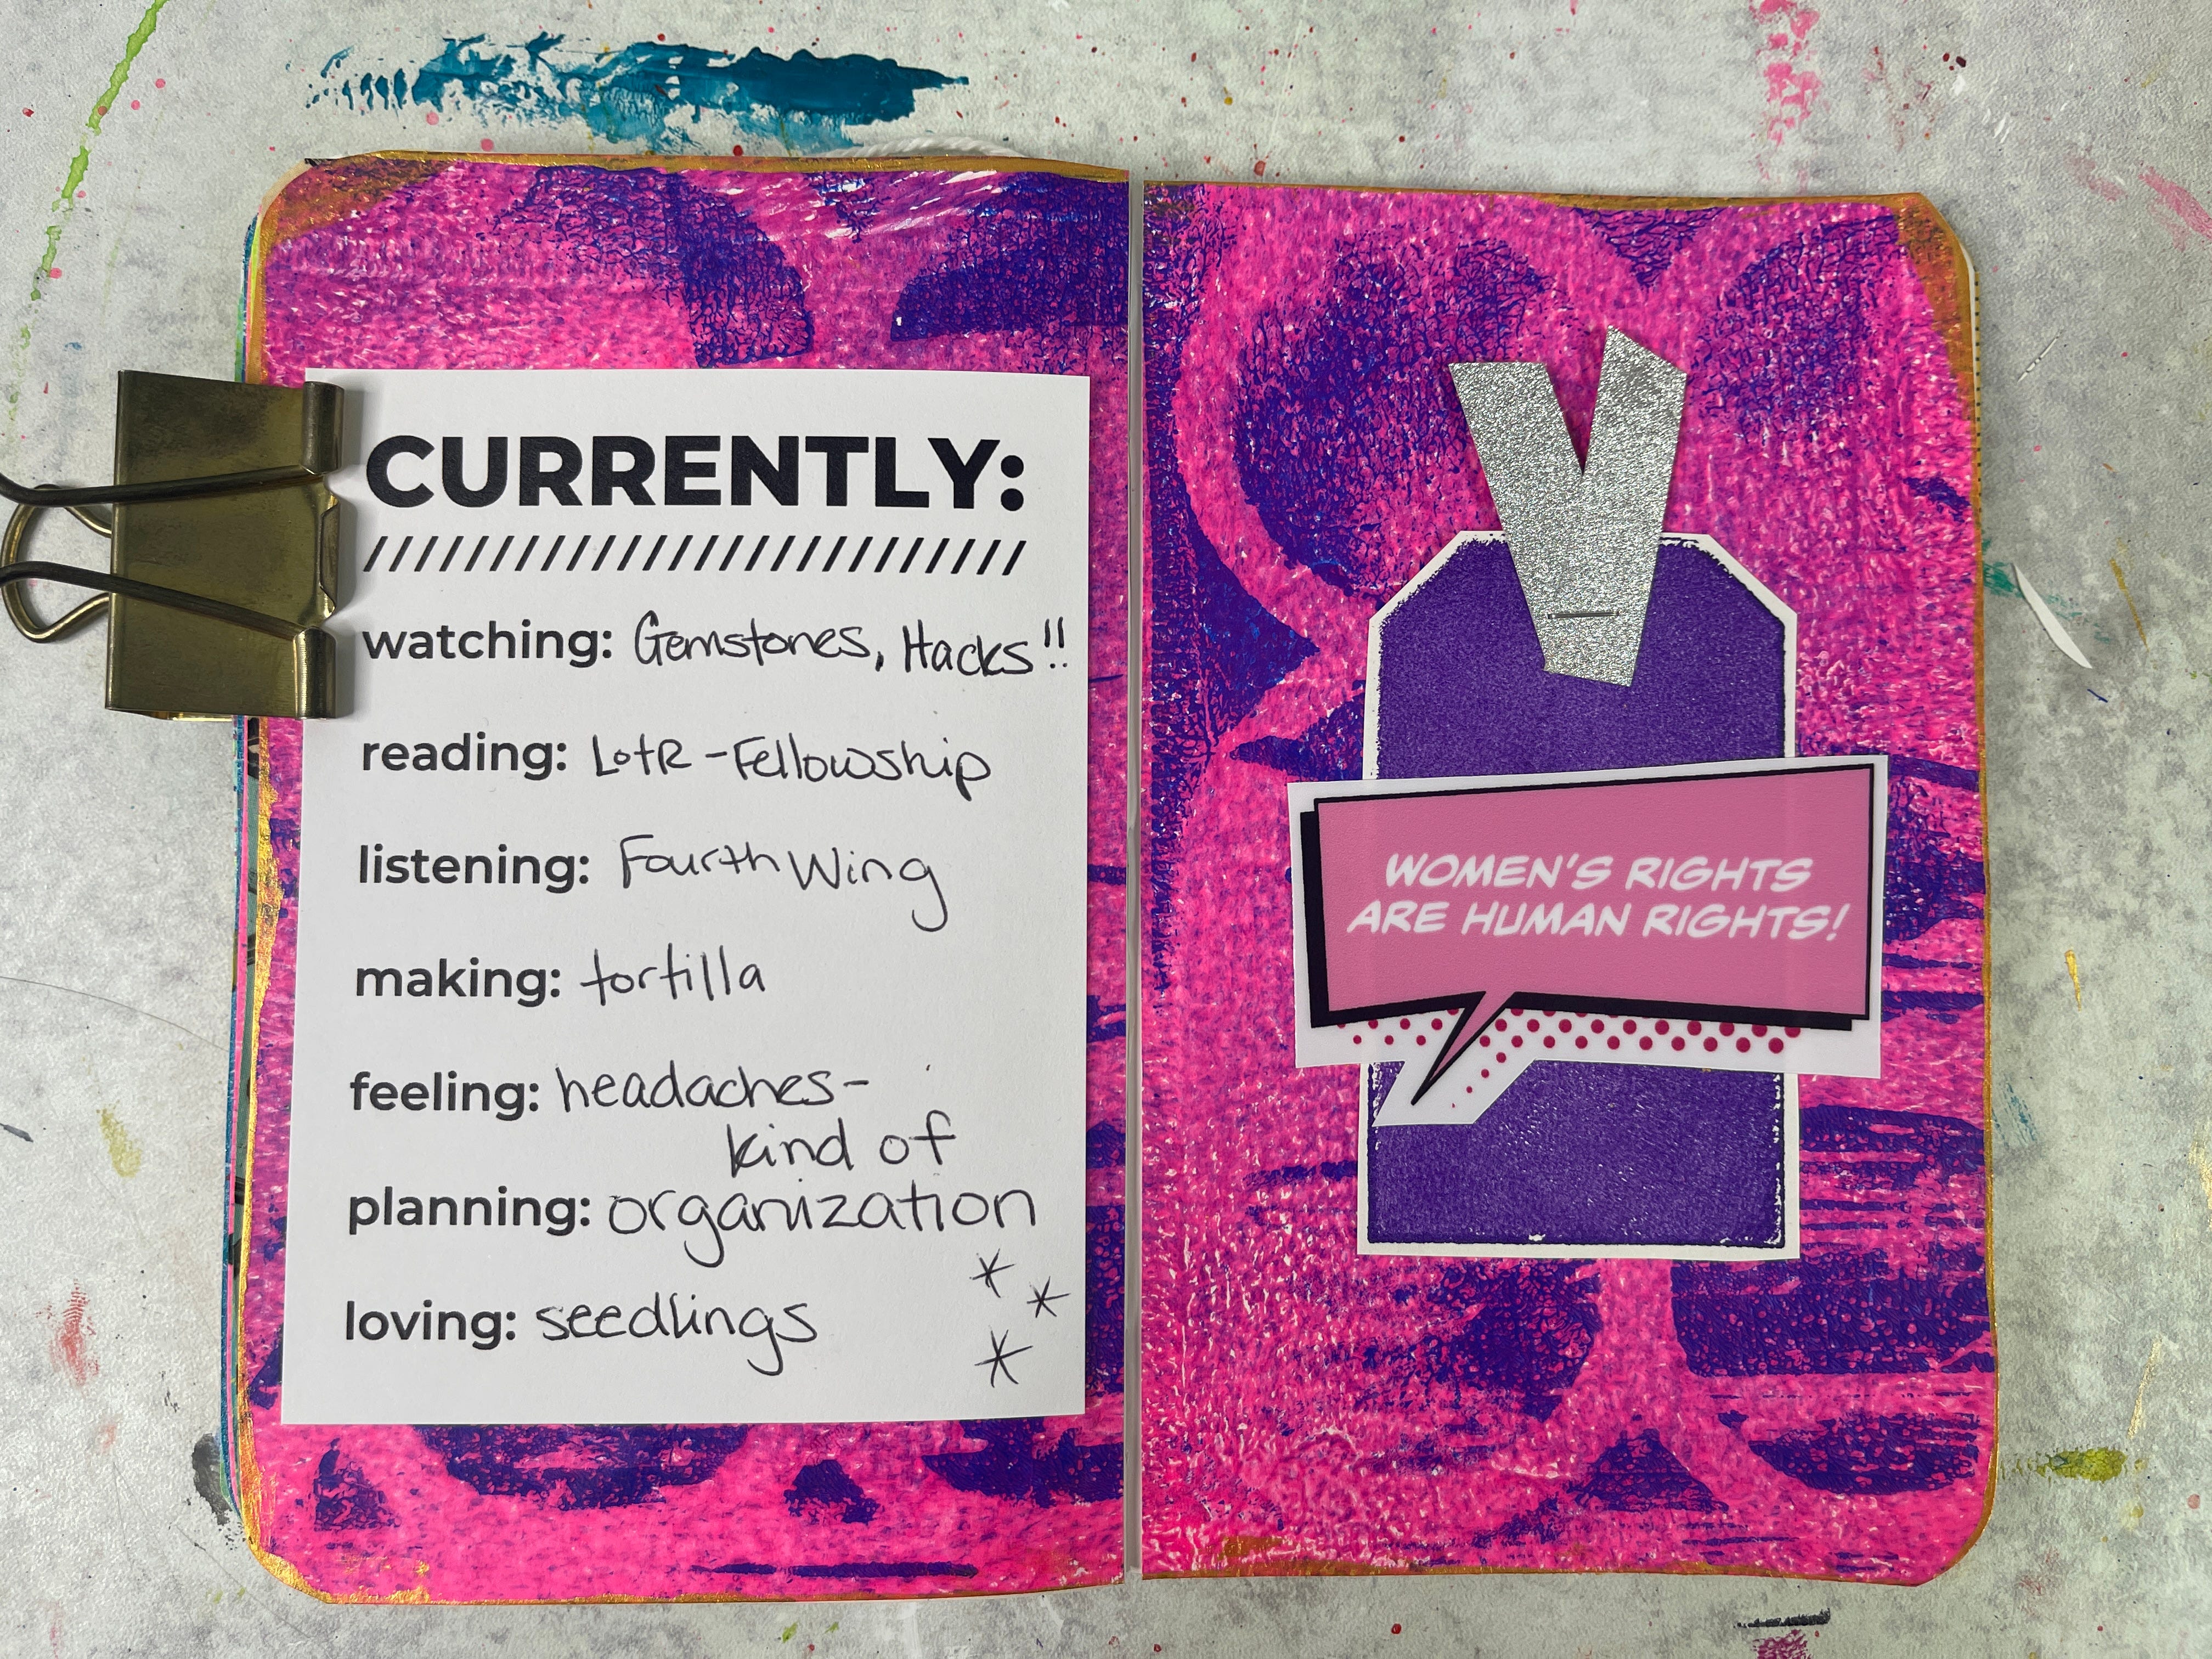 CURRENTLY:
watching: Gemstones, Hacks!!
reading: LotR - Fellowship
listening: Fourth Wing
making: tortilla
feeling: headaches -
kind of
planning: organization
loving: seedlings
WOMEN'S RIGHTS
ARE HUMAN RIGHTS!